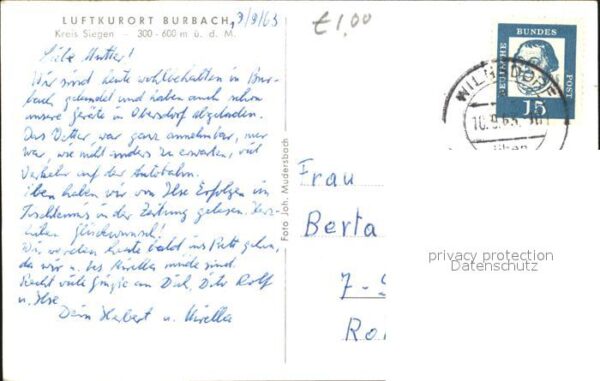 LUFTKURORT BURBACH, 9/9/63
Kreis Siegen - 300-600 m ü. d. M.
£1,00
Liebe Mutter!
Wir sind heute wohlbehalten in Bur-
bach gelandet und haben auch schon
unsere Geräte in Obersdorf abgeladen.
Das Wetter war ganz annehmbar, nur
war, wie nicht anders zu erwarten, viel
Verkehr auf der Autobahn.
Eben haben wir von Ilse Erfolgen im
Tischtennis in der Zeitung gelesen. Herz-
lichen Glückwunsch!
Wir werden heute bald ins Bett gehen,
da wir u. bes. Mirella müde sind.
Recht viele Grüße an Dich, Rolf
u. Ilse
Dein Hubert u. Mirella
Foto Joh. Mudersbach
DEUTSCHE BUNDES POST
15
WILNSDORF
10.9.63.-10
Frau
Berta
7-
Ro
privacy protection
Datenschutz